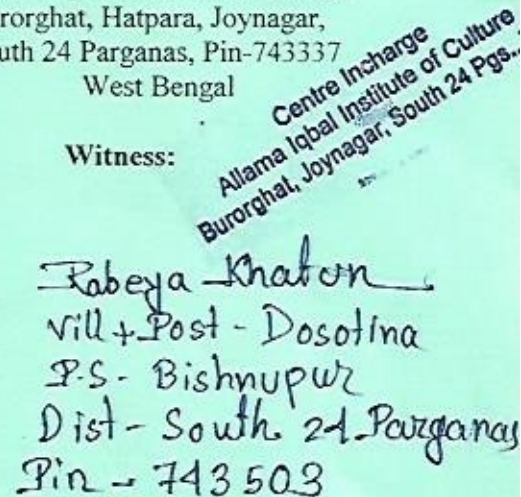 rorghat, Hatpara, Joynagar,
uth 24 Parganas, Pin-743337
West Bengal
Centre Incharge
Allama Iqbal Institute of Culture
Burorghat, Joynagar, South 24 Pgs.,
Witness:
Rabeya Khaton
Vill + Post - Dosotina
P.S - Bishnupur
Dist - South 24 Parganas
Pin - 743503